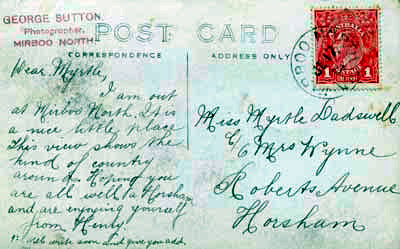 GEORGE SUTTON
Photographer,
MIRBOO NORTH
POST CARD
CORRESPONDENCE
ADDRESS ONLY
Dear Myrtle,
I am out
at Mirboo North. It is
a nice little place
This view shows the
kind of country
around. Hoping you
are all well at Horsham
and are enjoying yourself
from Henry.
write soon and give you add.
Miss Myrtle Dadswell
C/o Mrs Wynne
Roberts Avenue
Horsham
1 1